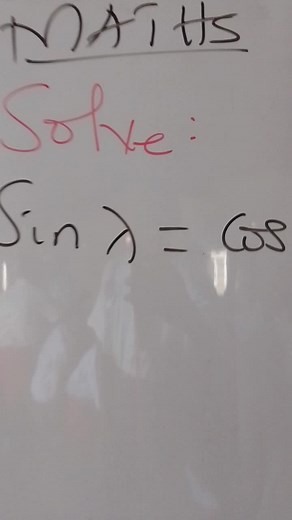 MATHS
Solve:
Sin λ = Cos